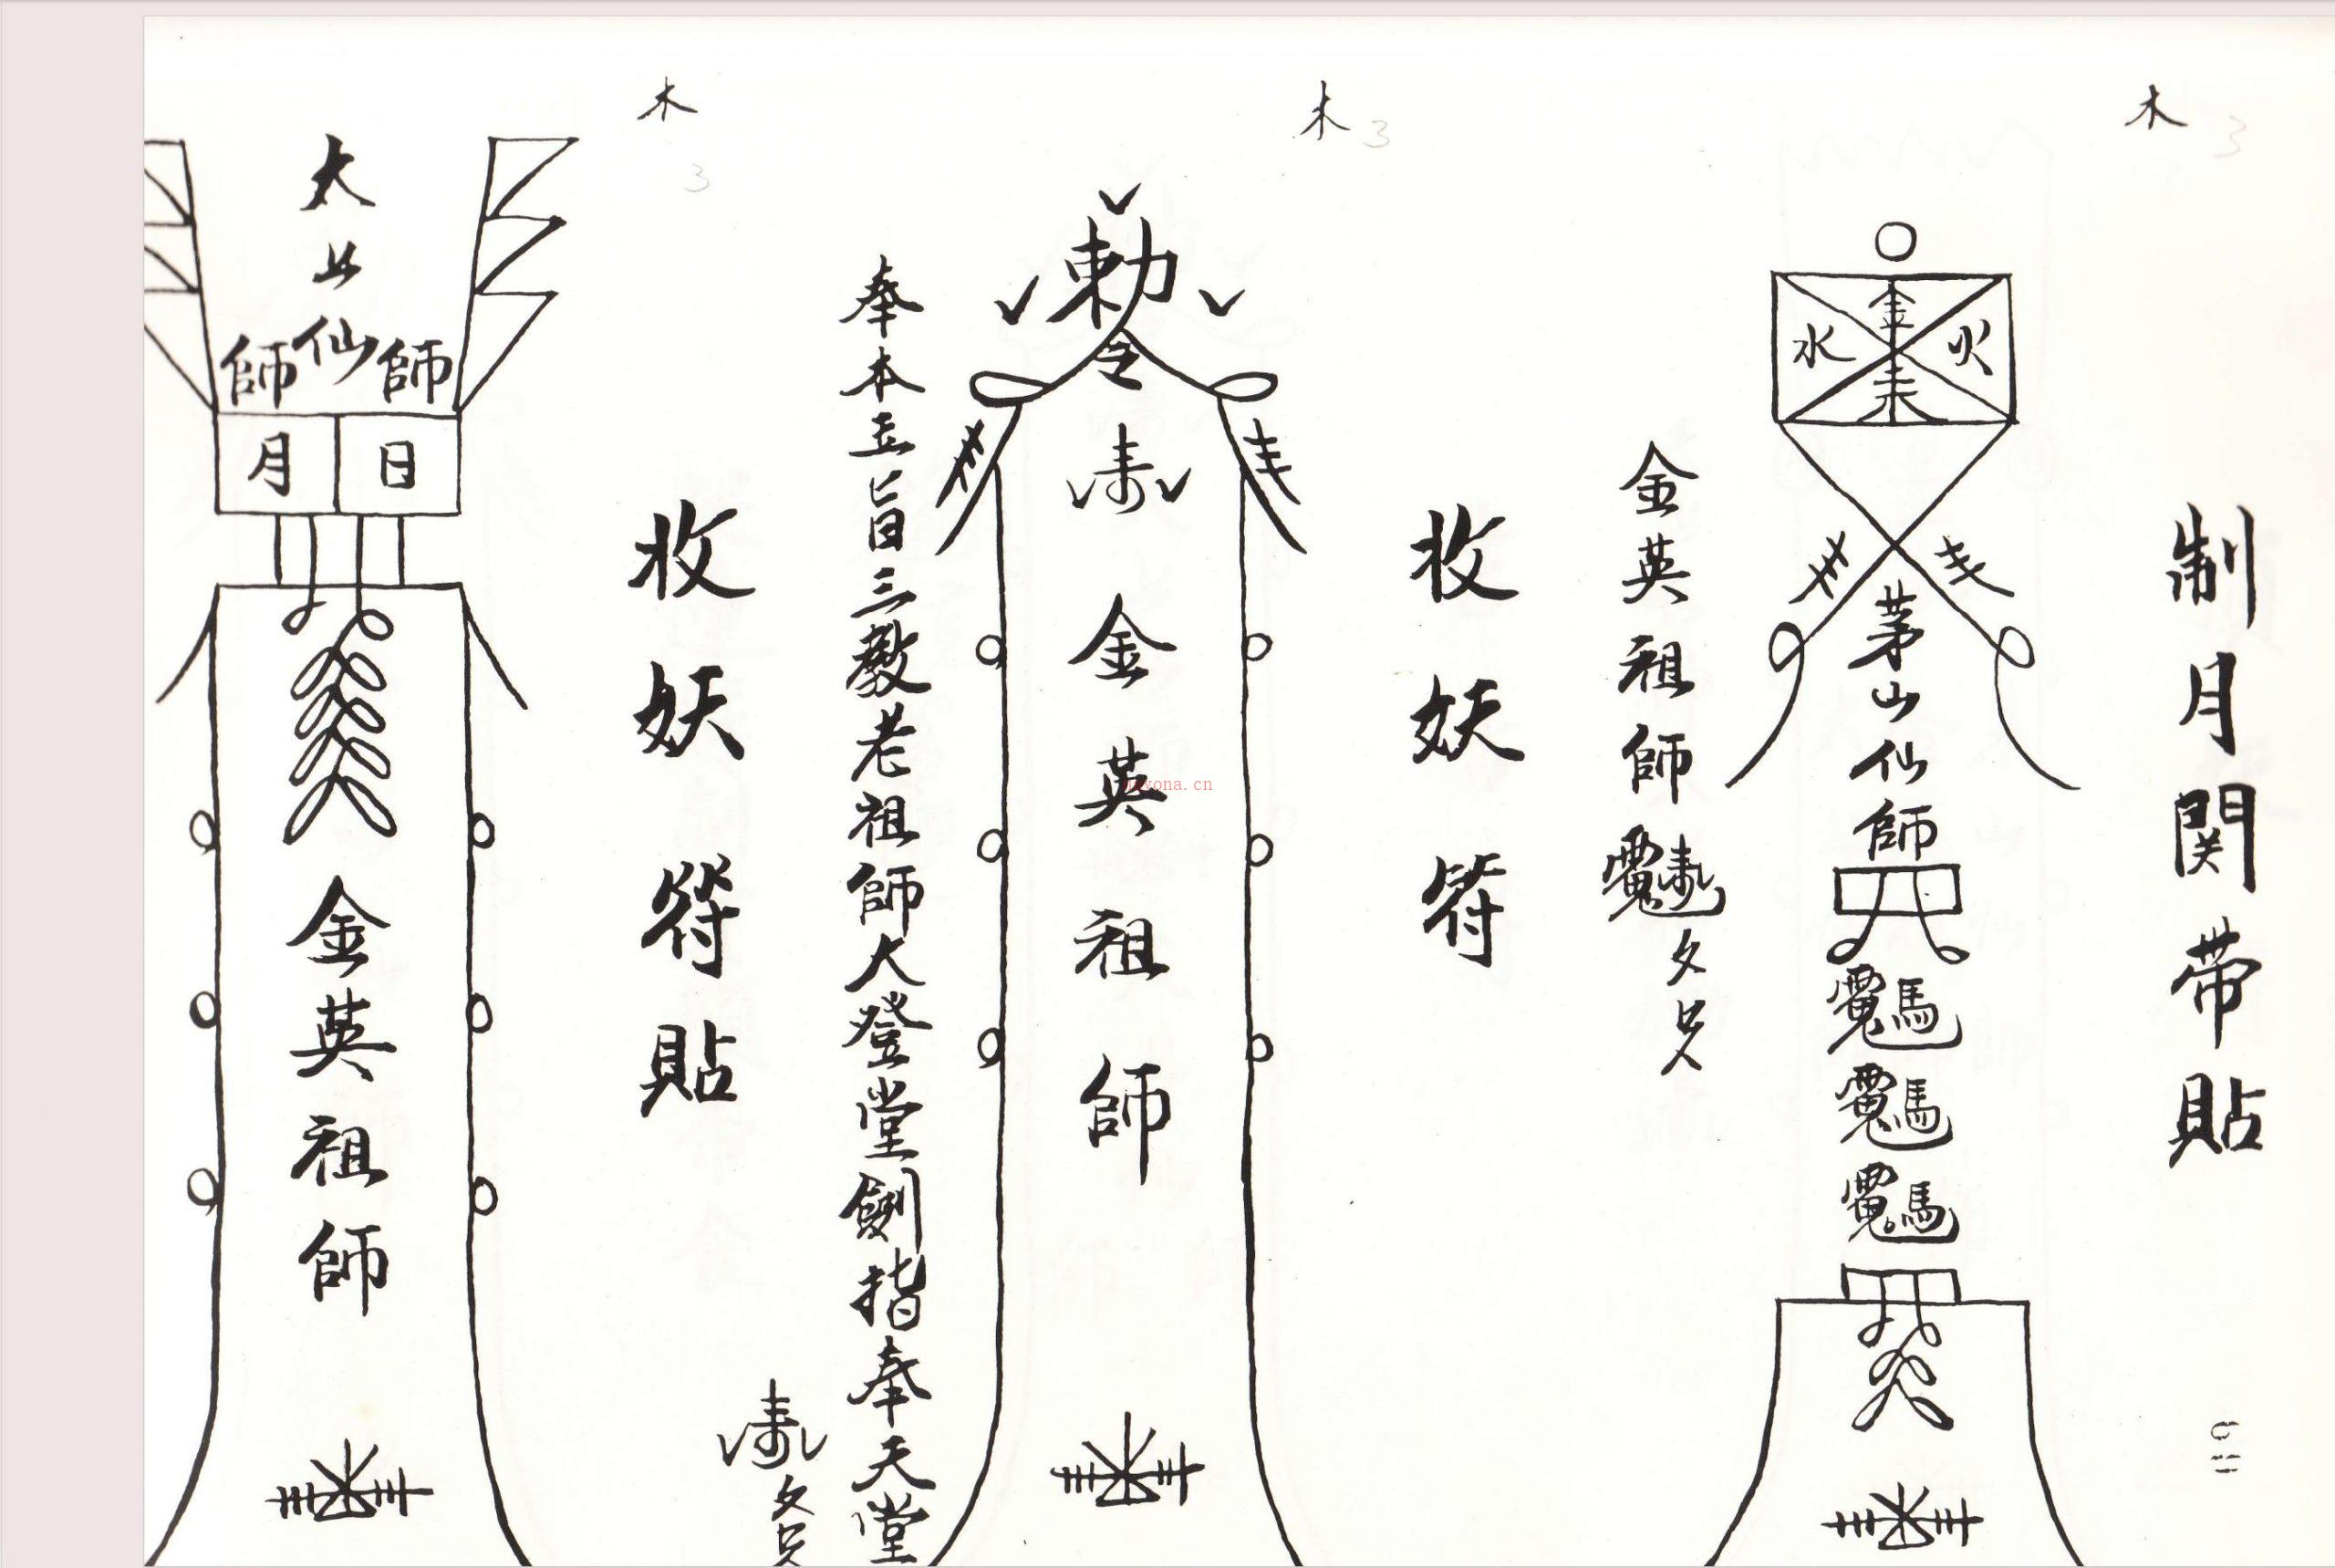 木
3
制月関带貼
水 金 火
茅山仙師
金英祖師
木
3
收妖符
勅令
金英祖師
奉本主旨三教老祖師大登堂劍指奉天堂
木
3
收妖符貼
太上仙師
師
月 日
金英祖師